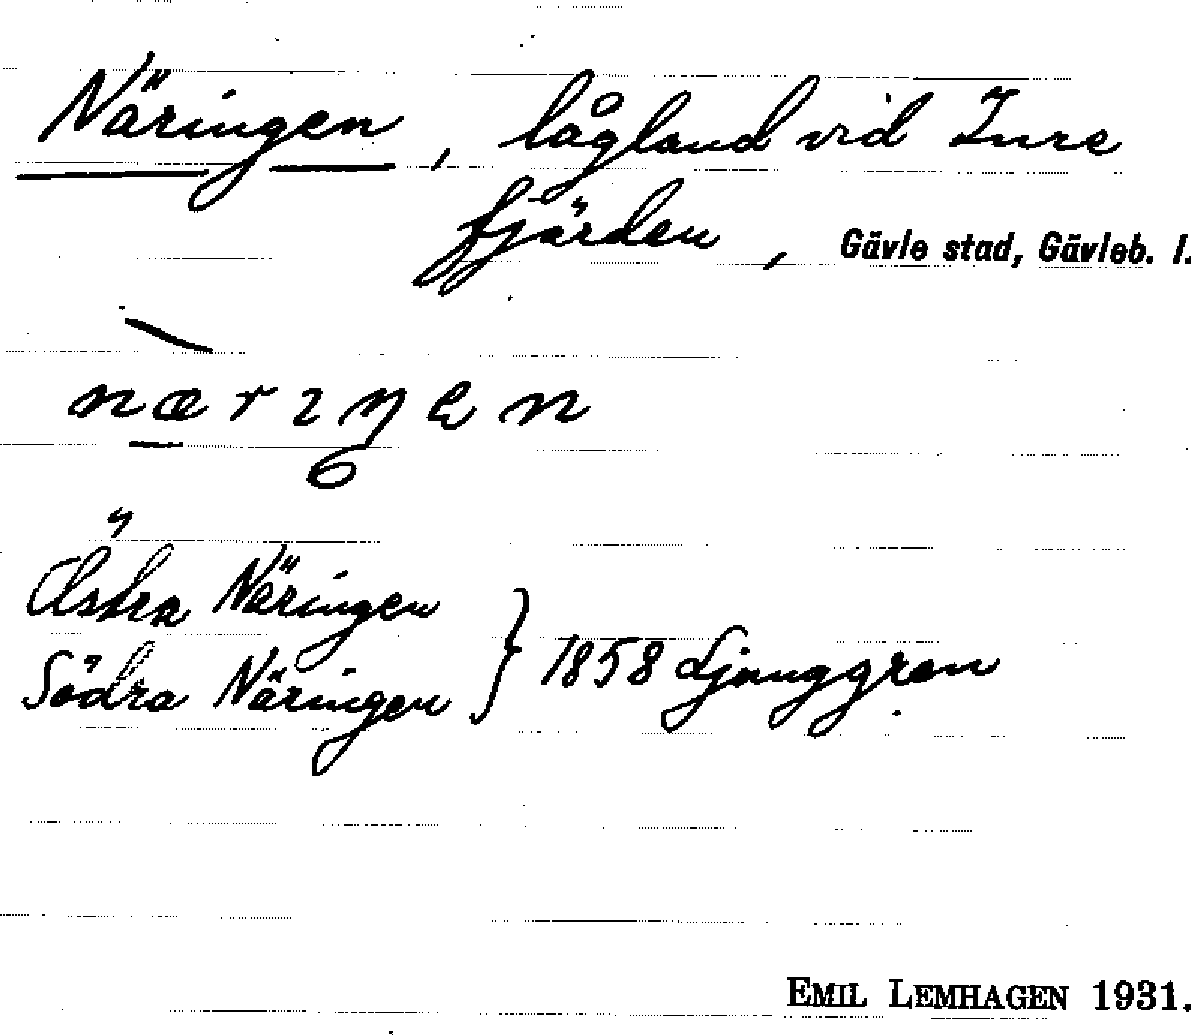 Näringen, lågland vid Inre
fjärden, Gävle stad, Gävleb. l.
næriŋen
Östra Näringen
Södra Näringen } 1858 Ljunggren
EMIL LEMHAGEN 1931.